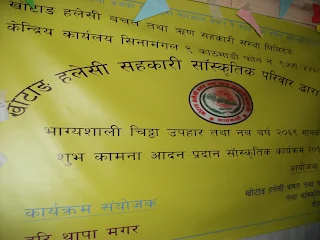 खोटाङ हलेसी बचत तथा ऋण सहकारी संस्था लिमिटेड
केन्द्रिय कार्यलय सिनामंगल ९ काठमाडौं फोन नं
खोटाङ हलेसी सहकारी सांस्कृतिक परिवार द्वारा
भाग्यशाली चिठ्ठा उपहार तथा नव बर्ष २०६९
शुभ कामना आदन प्रदान साँस्कृतिक कार्यक्रम
आयोजक
खोटाङ हलेसी बचत तथा
कार्यक्रम संयोजक
हरि थापा मगर